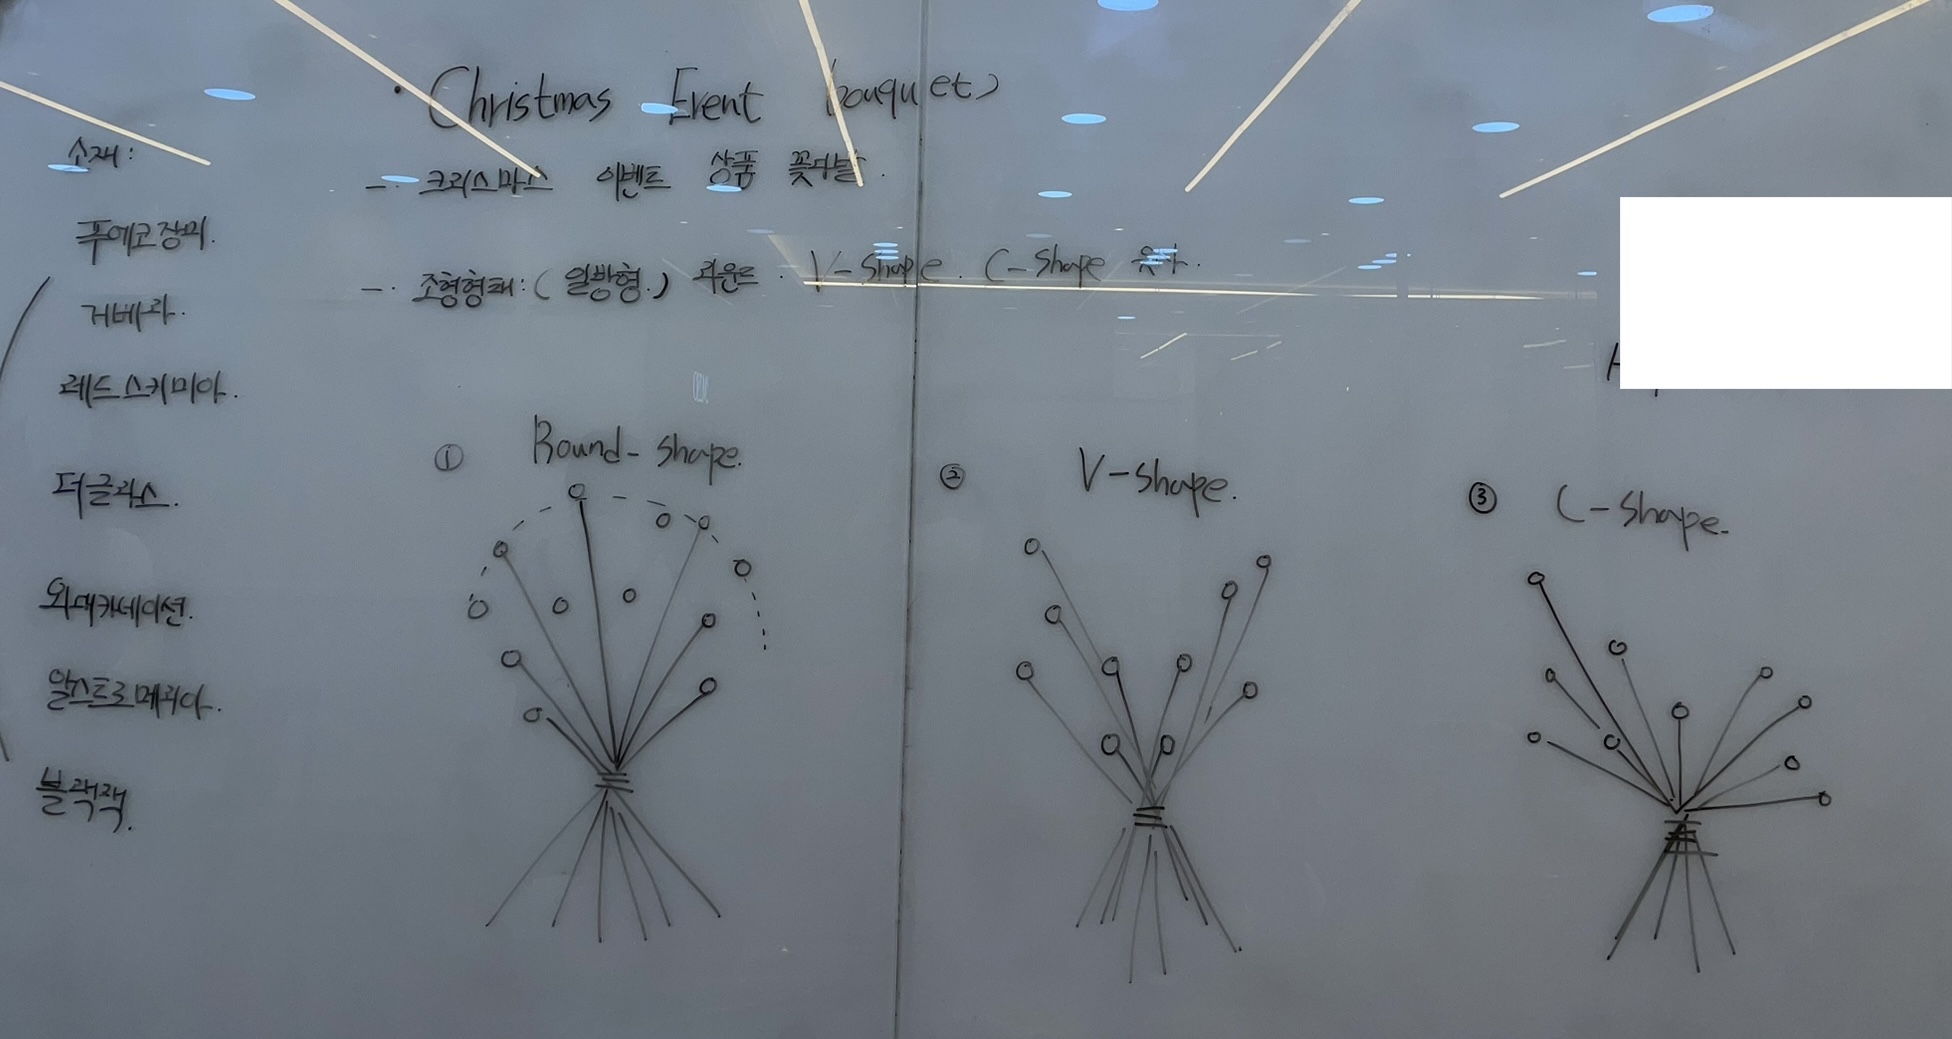 · Christmas Event bouquet)
-· 크리스마스 이벤트 상품 꽃다발.
-· 조형형태:( 일방형.) 라운드 · V-shape. C-shape 유사.
소재:
푸에고장미.
거베라.
레드스키미아.
더글라스.
왁대카네이션.
알스트로메리아.
블랙잭.
① Round-shape.
② V-shape.
③ C-shape.